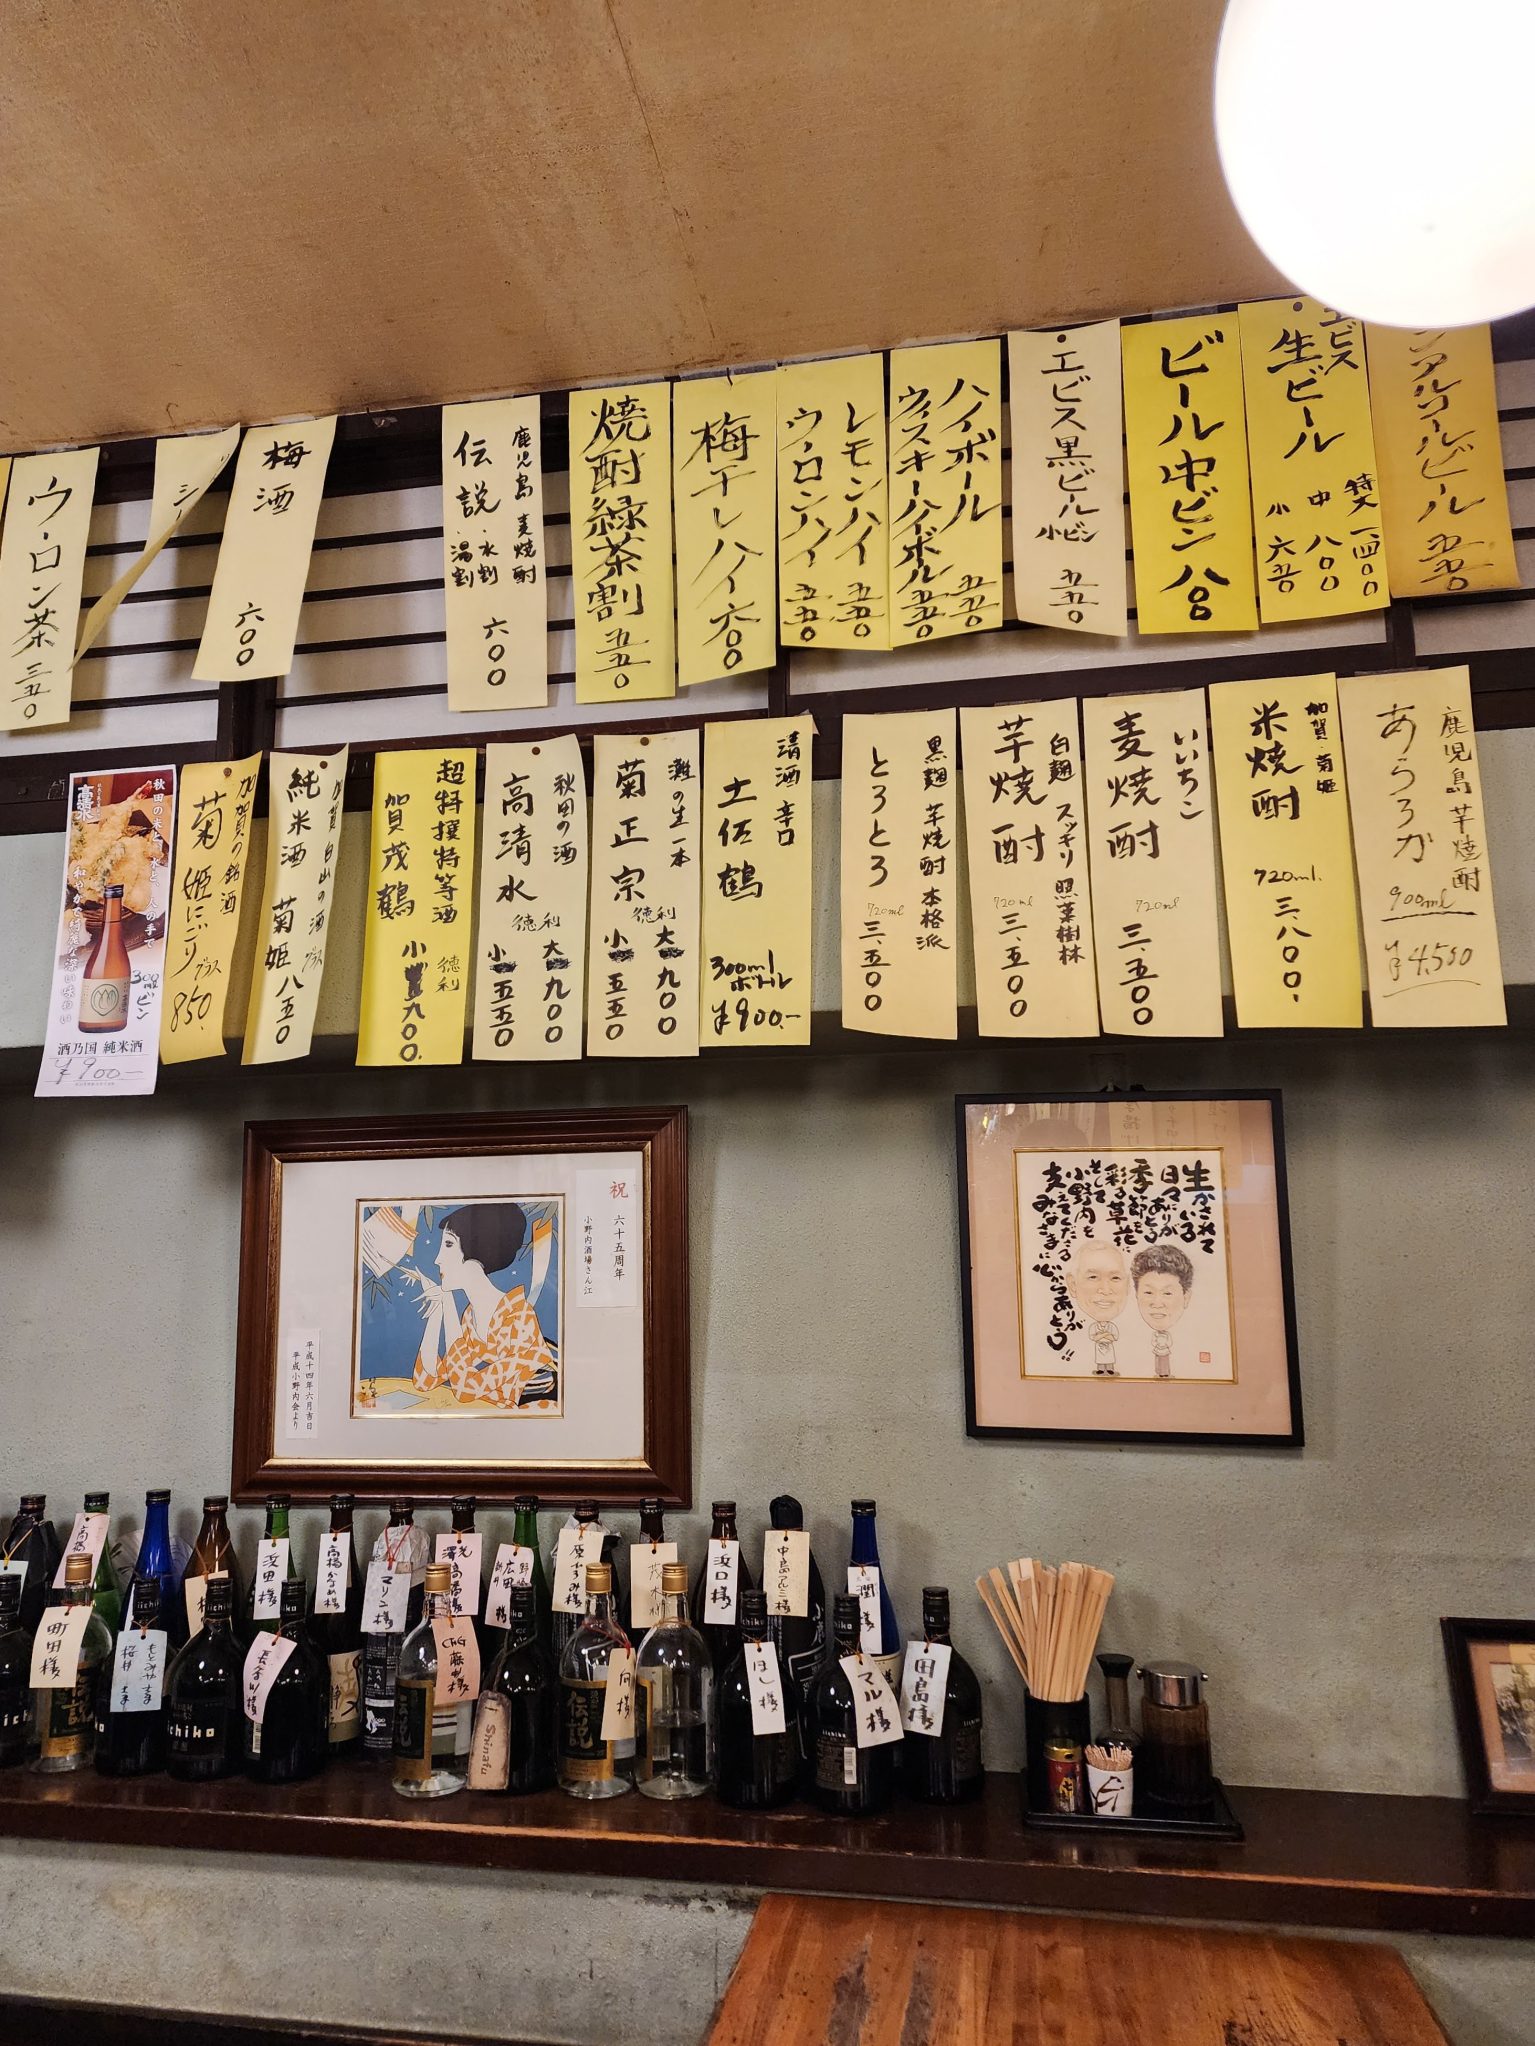 エビス
生ビール
特大 一、四〇〇
中 八〇〇
小 六五〇
ビール中ビン 八〇〇
エビス黒ビール
小ビン 五五〇
ハイボール 五五〇
ウィスキーハイボール 五五〇
レモンハイ 五五〇
ウーロンハイ 五五〇
梅干しハイ 六〇〇
焼酎緑茶割 五五〇
鹿児島 麦焼酎
伝説
・水割
・湯割
六〇〇
梅酒 六〇〇
ウーロン茶 三五〇
鹿児島 芋焼酎
あらろか
900ml
¥4,500
加賀・菊姫
米焼酎
720ml.
三、八〇〇.
いいちこ
麦焼酎
720ml
三、五〇〇
白麹 スッキリ 照葉樹林
芋焼酎
720ml
三、五〇〇
黒麹 芋焼酎 本格派
とろとろ
720ml
三、五〇〇
清酒 辛口
土佐鶴
300ml
ボトル
¥900.-
灘の生一本
菊正宗
徳利
大 九〇〇
小 五五〇
秋田の酒
高清水
徳利
大 九〇〇
小 五五〇
超特撰特等酒
賀茂鶴
徳利
小 九〇〇.
加賀 白山の酒
純米酒 菊姫
グラス
八五〇
加賀の銘酒
菊姫にごり
グラス
850.
高清水
300
ビン
酒乃国 純米酒
¥900-
祝 六十五周年
小野内酒場さん江
平成十四年六月吉日
平成小野内会より
生かされている
日々にありがとう
季節を
彩る草花に
そして
小野内を
支えてくださる
みなさまに
心からありがとう!!
浜田様
高橋かなめ様
マリン様
広田様
浜口様
潤様
町田様
もとみやさま
桜井さま
CHG
Shinafu
向様
ほし様
マル様
田島様
iichiko
iichiko
iichiko
伝説